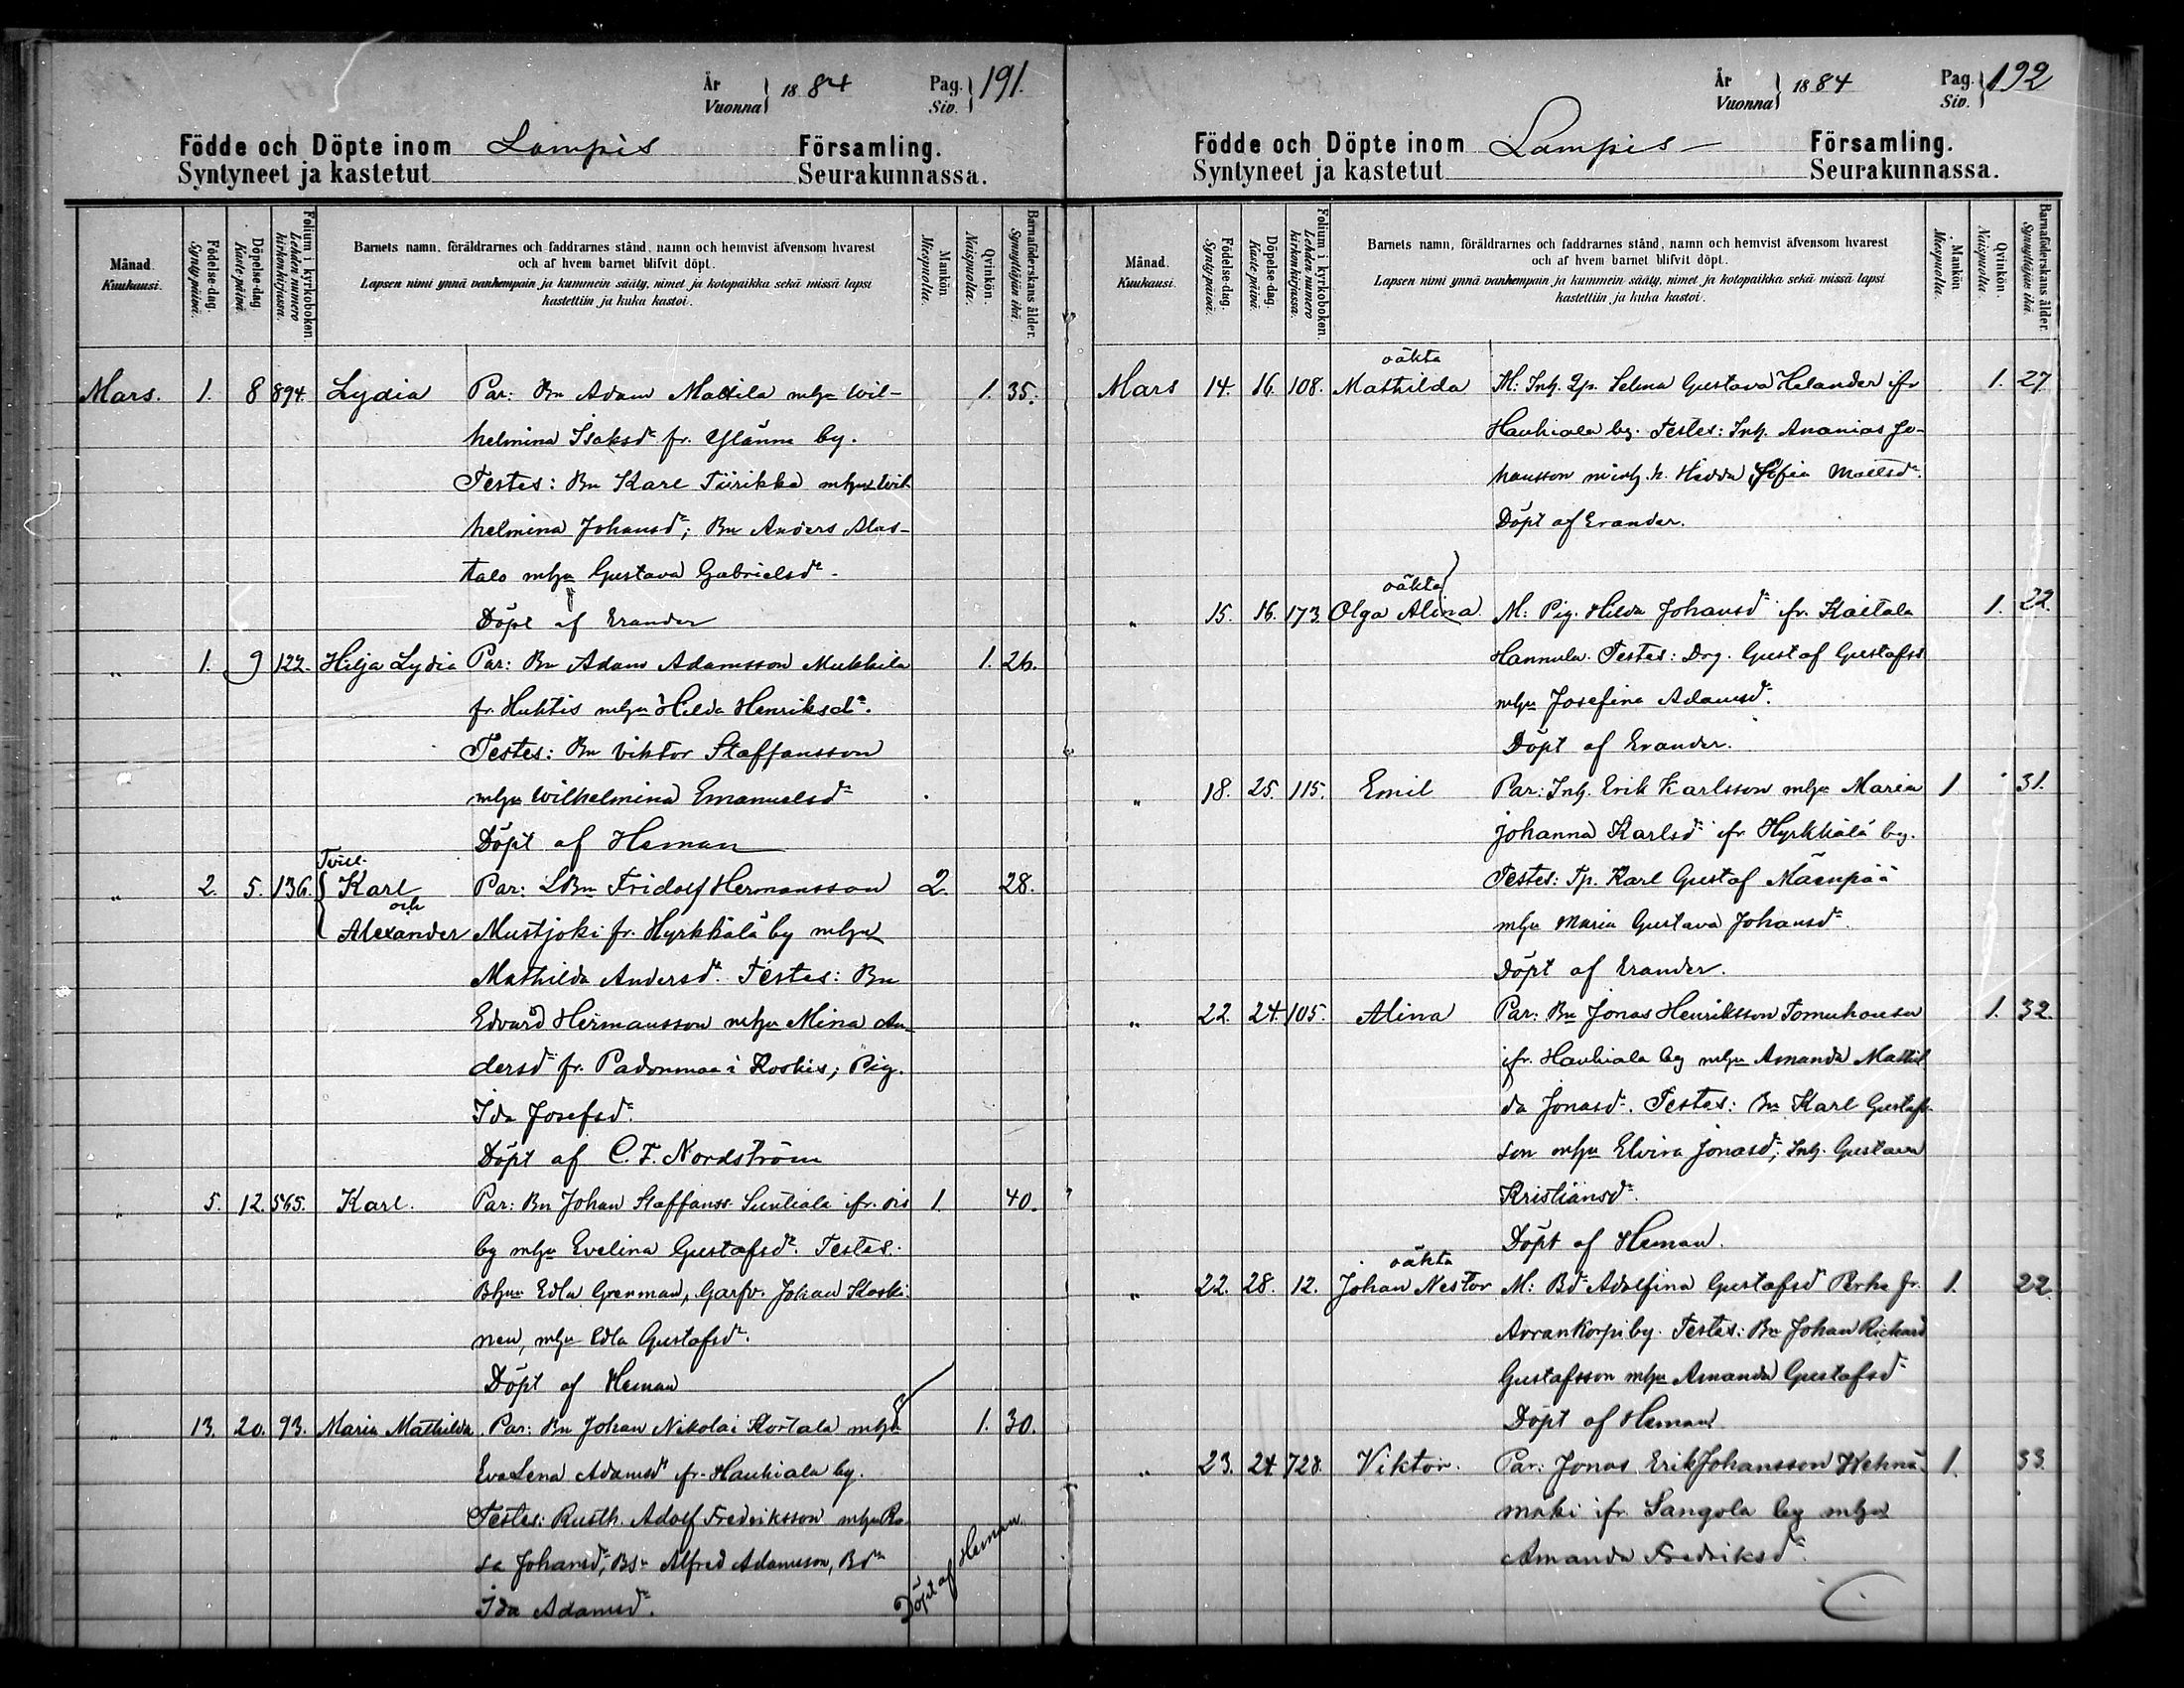 År
Vuonna
1884
Pag.
Siv.
191.
Födde och Döpte inom Lampis Församling.
Syntyneet ja kastetut Seurakunnassa.
Månad.
Kuukausi.
Födelse-dag.
Synty-päivä.
Döpelse-dag.
Kaste-päivä.
Folium i kyrkoboken.
Lehden numero
kirkonkirjassa.
Barnets namn, föräldrarnes och faddrarnes stånd, namn och hemvist äfvensom hvarest
och af hvem barnet blifvit döpt.
Lapsen nimi ynnä vanhempain ja kummein sääty, nimet ja kotopaikka sekä missä lapsi
kastettiin ja kuka kastoi.
Mankön.
Miespuolla.
Qvinkön.
Naispuolla.
Barnaföderskans ålder.
Synnyttäjän ikä.
Mars. 1. 8 894. Lydia Par: Bn Adam Mattila mhu Wil- 1. 35.
helmina Isaksdr fr. Ylänne by.
Testes: Bn Karl Tiirikka mhu Wil
helmina Johansdr; Bn Anders Alas-
talo mhu Gustava Gabrielsdr.
Döpt af Evander
" 1. 9 122. Hilja Lydia Par: Bn Adam Adamsson Mukkila 1. 26.
fr. Huktis mhu Hilda Henriksdr.
Testes: Bn Viktor Staffansson
mhu Wilhelmina Emanuelsdr
Döpt af Heman
Tvill.
" 2. 5. 136. Karl Par: LBn Fridolf Hermansson 2. 28.
och
Alexander Mustjoki fr. Hyrkkälä by mhu
Mathilda Andersdr. Testes: Bn
Edvard Hermansson mhu Mina An-
dersdr fr. Padonmaa i Koskis; Pig.
Ida Josefsdr.
Döpt af C. F. Nordström
" 5. 12. 565. Karl. Par: Bn Johan Staffanss. Suntiala ifr. 1. 40.
by mhu Evelina Gustafsdr. Testes:
Edla Grenman, Garfv. Johan Koski-
nen, mhu Edla Gustafsdr.
Döpt af Heman
" 13. 20. 93. Maria Mathilda Par: Bn Johan Nikolai Kortala mhu 1. 30.
Eva Lena Adamsdr ifr. Hauhiala by.
Testes: Rusth. Adolf Fredriksson mhu Ro-
sa Johansdr, Bsn Alfred Adamsson, Bdr
Ida Adamsdr.
Döpt af Heman.
År
Vuonna
1884
Pag.
Siv.
192
Födde och Döpte inom Lampis Församling.
Syntyneet ja kastetut Seurakunnassa.
Månad.
Kuukausi.
Födelse-dag.
Synty-päivä.
Döpelse-dag.
Kaste-päivä.
Folium i kyrkoboken.
Lehden numero
kirkonkirjassa.
Barnets namn, föräldrarnes och faddrarnes stånd, namn och hemvist äfvensom hvarest
och af hvem barnet blifvit döpt.
Lapsen nimi ynnä vanhempain ja kummein sääty, nimet ja kotopaikka sekä missä lapsi
kastettiin ja kuka kastoi.
Mankön.
Miespuolla.
Qvinkön.
Naispuolla.
Barnaföderskans ålder.
Synnyttäjän ikä.
oäkta
Mars 14. 16. 108. Mathilda M: Inh. Qp. Selma Gustava Helander ifr 1. 27
Hauhiala by. Testes: Inh. Ananias Jo-
hansson m Inh. h. Hedda Sofia Mattsdr.
Döpt af Evander.
oäkta
" 15. 16. 173. Olga Alina M: Pig. Hilda Johansdr ifr. Kaitala 1. 22.
Hannula. Testes: Drg. Gustaf Gustafss
mhu Josefina Adamsdr.
Döpt af Evander.
" 18. 25. 115. Emil Par: Inh. Erik Karlsson mhu Maria 1 31.
Johanna Karlsdr ifr Hyrkkälä by.
Testes: Tp. Karl Gustaf Mäenpää
mhu Maria Gustava Johansdr.
Döpt af Evander.
" 22. 24. 105. Alina Par: Bn Jonas Henriksson 1. 32.
ifr. Hauhiala by mhu Amanda Mathil
da Jonasdr. Testes: Bn Karl Gustafs-
son mhu Elvira Jonasdr; Inh. Gustava
Kristiansdr.
Döpt af Heman.
oäkta
" 22. 28. 12. Johan Nestor M: Bdr Adolfina Gustafsdr Perho fr. 1. 22.
Arrankorpi by. Testes: Bn Johan Richard
Gustafsson mhu Amanda Gustafsdr
Döpt af Heman.
" 23. 24 728. Viktor. Par: Jonas Erik Johansson Wehnä- 1. 33.
mäki ifr. Sangola by mhu
Amanda Fredriksdr.